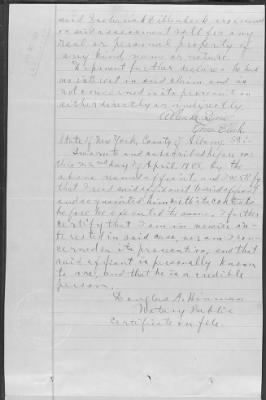 said Frederick Dillenbeck
on said assessment roll for any
real or personal property of
any kind name or nature.
Deponent further declares he has
no interest in said claim and is
not concerned in its prosecution
either directly or indirectly.
Town Clerk
State of New York, County of Albany SS.
Sworn to and subscribed before me
this 22nd day of April 1886 by the
above named affiant and I certify
that I read said affidavit to said affiant
and acquainted him with its contents
before he executed the same. I further
certify that I am in nowise in-
terested in said case, nor am I con-
cerned in its prosecution, and that
said affiant is personally known
to me, and that he is a credible
person.
Douglas A. Hinman
Notary Public
Certificate on file.